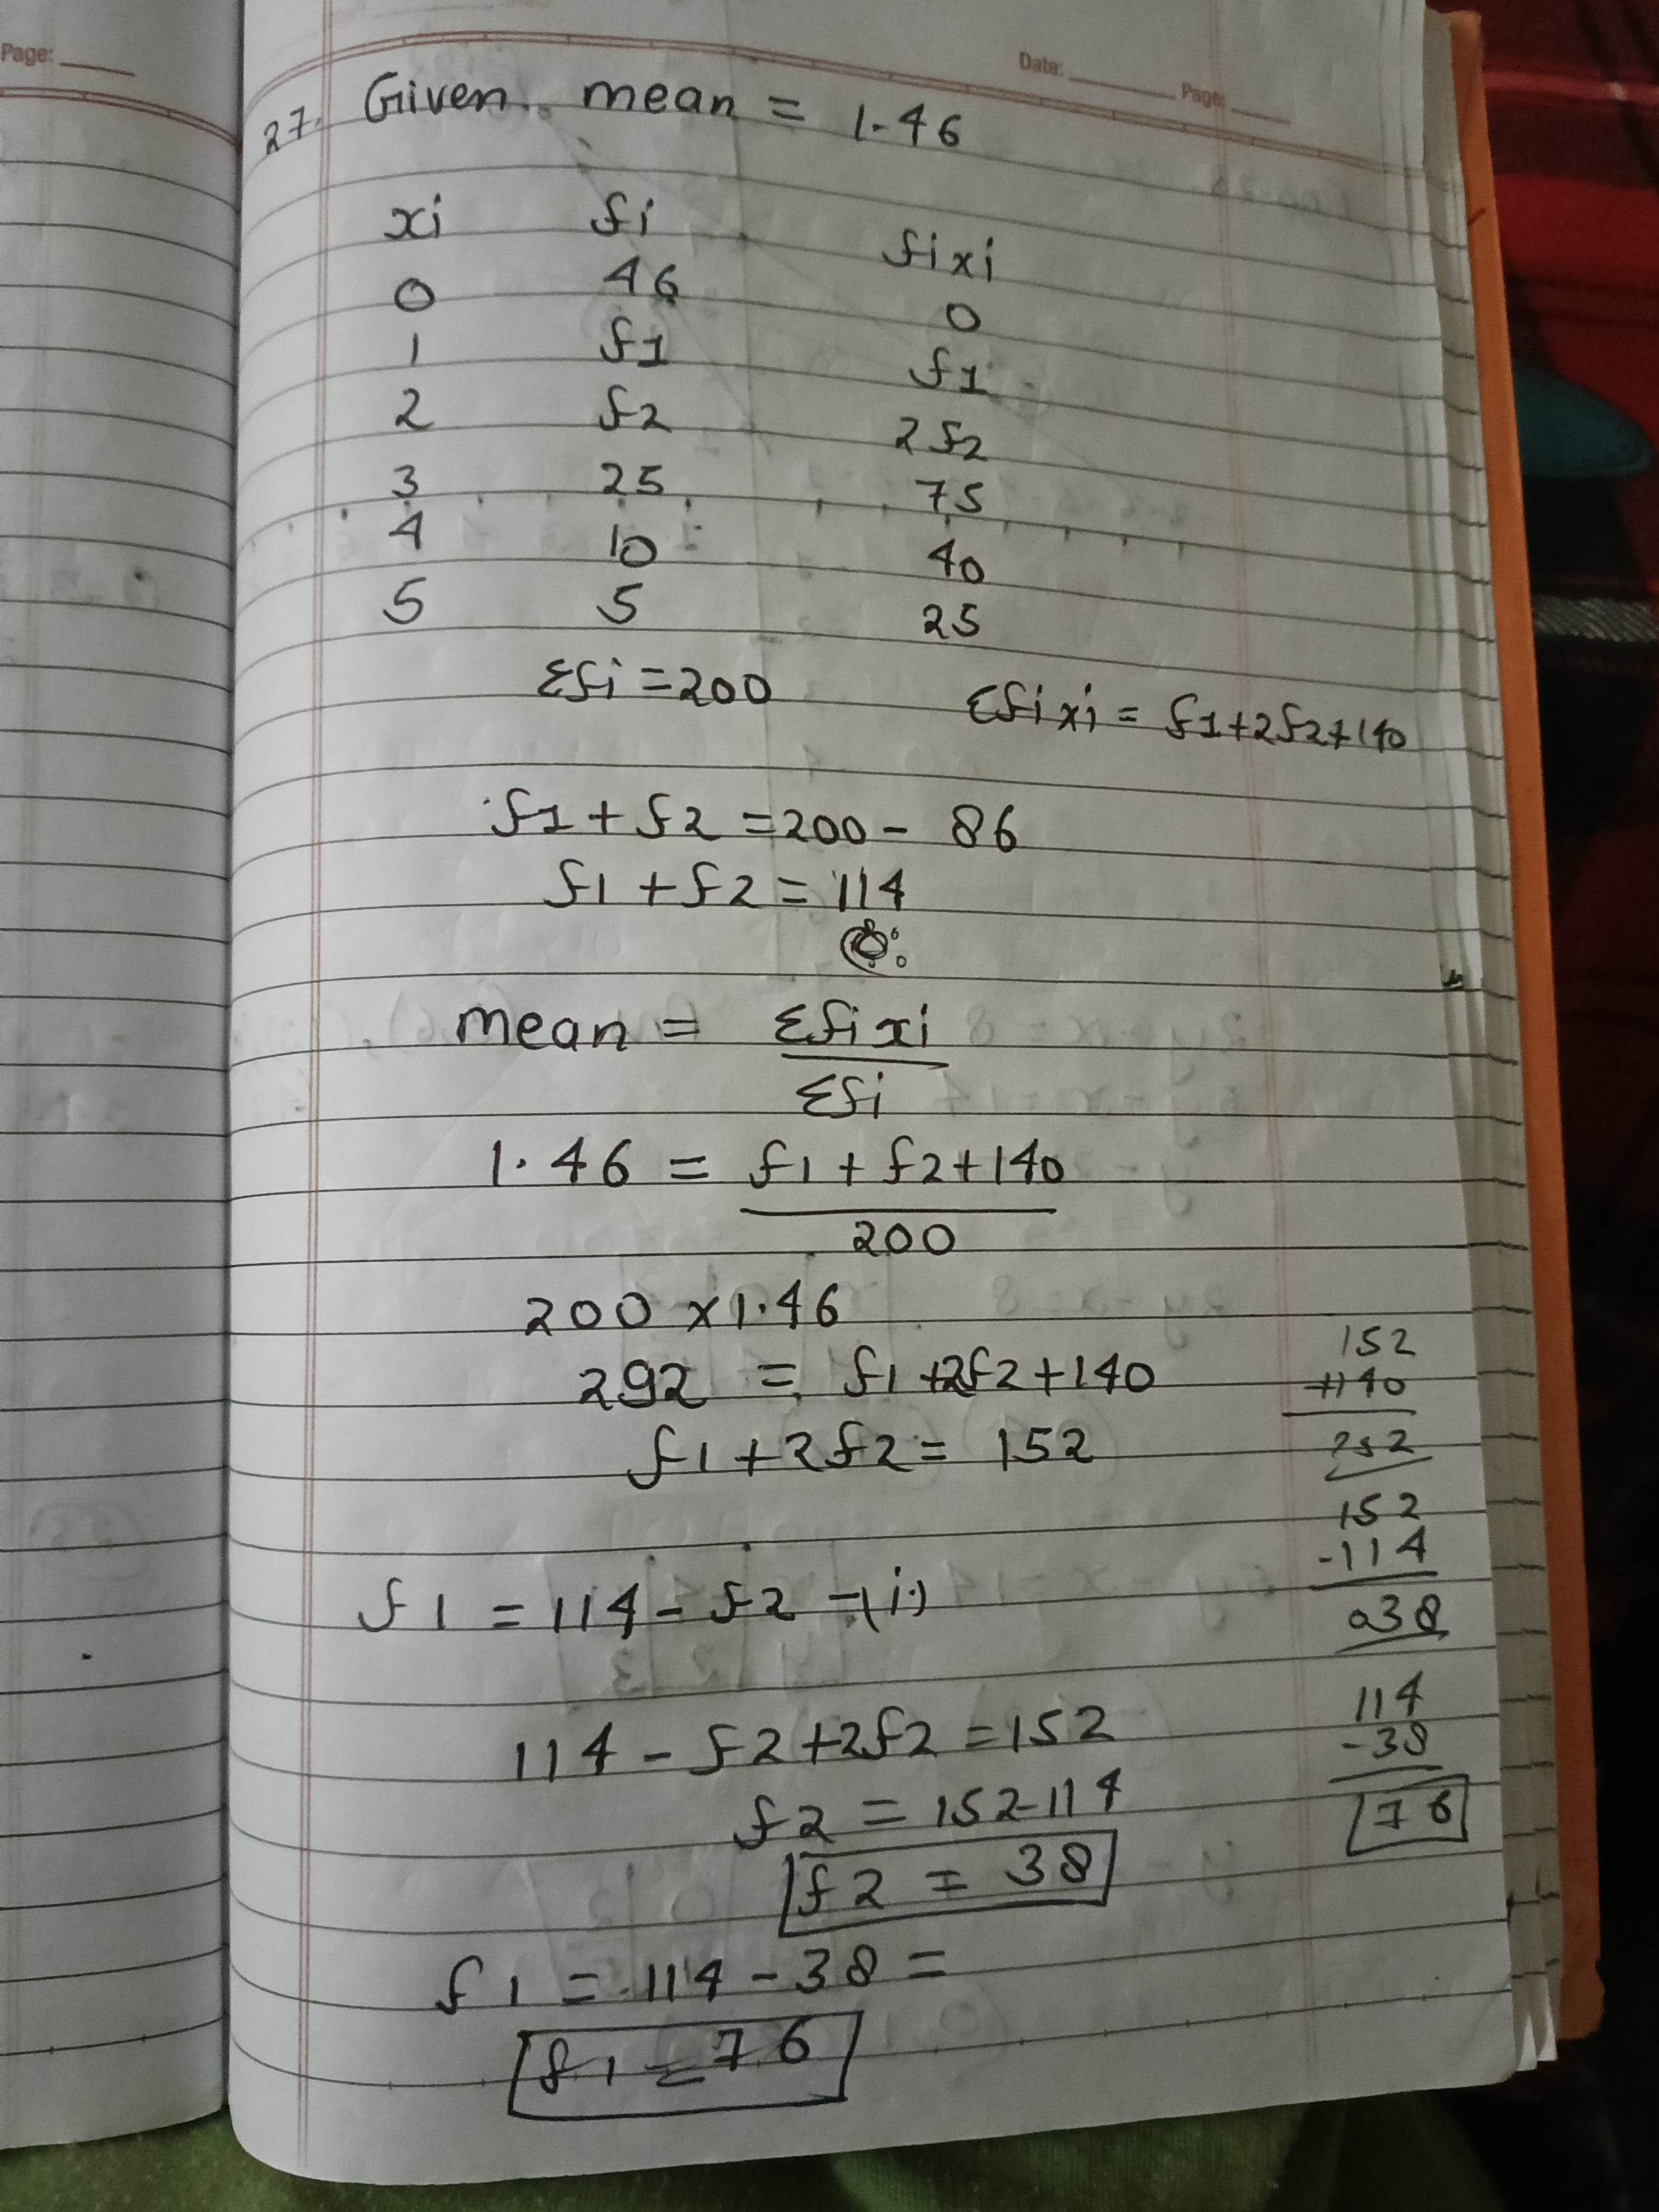 Page:
Date: Page:
27. Given mean = 1.46
xi fi fixi
0 46 0
1 f1 f1
2 f2 2f2
3 25 75
4 10 40
5 5 25
Σfi = 200 Σfixi = f1+2f2+140
f1 + f2 = 200 - 86
f1 + f2 = 114
mean = Σfixi
Σfi
1.46 = f1 + f2 + 140
200
200 x 1.46
292 = f1 + 2f2 + 140
f1 + 2f2 = 152
152
+140
252
152
-114
038
f1 = 114 - f2 -(i)
114 - f2 + 2f2 = 152
f2 = 152-114
f2 = 38
114
-38
76
f1 = 114 - 38 =
f1 = 76